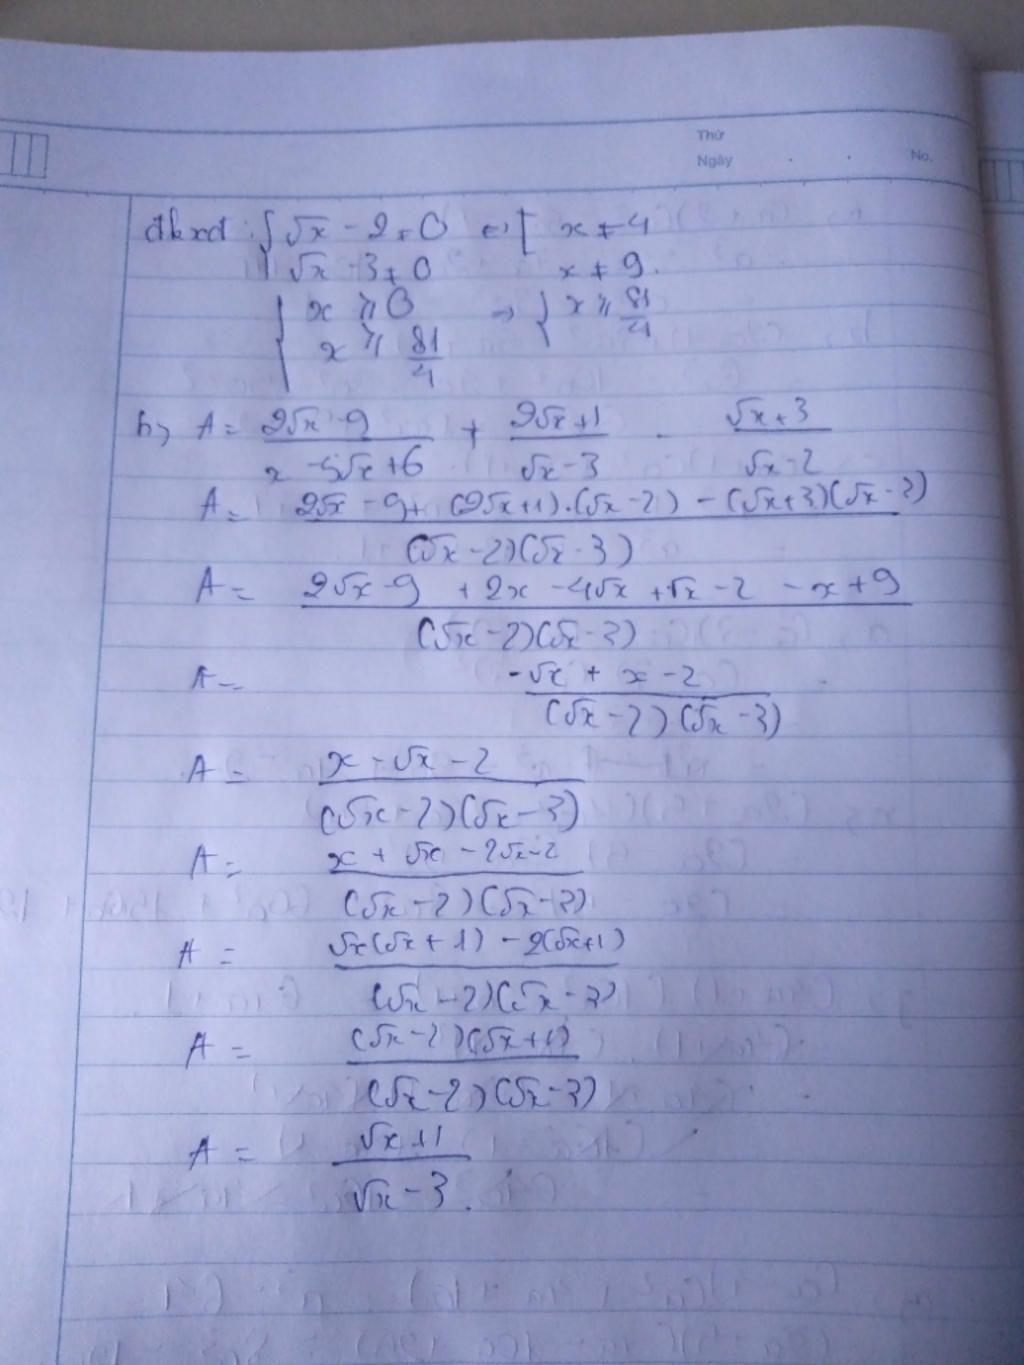 Thứ
Ngày . . No.
đkxđ : { √x - 2 ≠ 0 ⇔ [ x ≠ 4
√x - 3 ≠ 0 x ≠ 9.
{ x ⩾ 0 → { x ⩾ 81/4
x ⩾ 81/4
b, A = (2√x - 9)/(x - 5√x + 6) + (2√x + 1)/(√x - 3) - (√x + 3)/(√x - 2)
A = (2√x - 9 + (2√x + 1).(√x - 2) - (√x + 3)(√x - 3))/((√x - 2)(√x - 3))
A = (2√x - 9 + 2x - 4√x + √x - 2 - x + 9)/((√x - 2)(√x - 3))
A = (-√x + x - 2)/((√x - 2)(√x - 3))
A = (x - √x - 2)/((√x - 2)(√x - 3))
A = (x + √x - 2√x - 2)/((√x - 2)(√x - 3))
A = (√x(√x + 1) - 2(√x + 1))/((√x - 2)(√x - 3))
A = ((√x - 2)(√x + 1))/((√x - 2)(√x - 3))
A = (√x + 1)/(√x - 3).